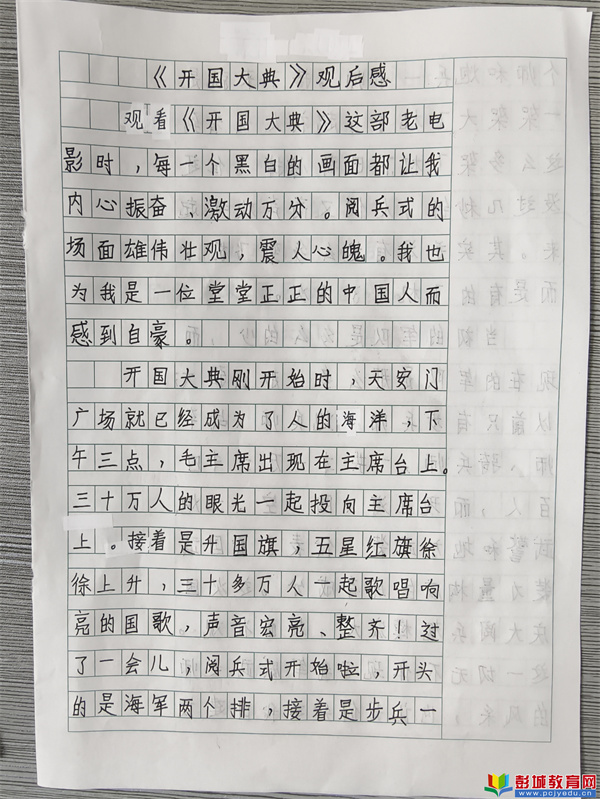 《开国大典》观后感
观看《开国大典》这部老电
影时，每一个黑白的画面都让我
内心振奋、激动万分。阅兵式的
场面雄伟壮观，震人心魄。我也
为我是一位堂堂正正的中国人而
感到自豪。
开国大典刚开始时，天安门
广场就已经成为了人的海洋，下
午三点，毛主席出现在主席台上。
三十万人的眼光一起投向主席台
上。接着是升国旗，五星红旗徐
徐上升，三十多万人一起歌唱响
亮的国歌，声音宏亮、整齐！过
了一会儿，阅兵式开始啦，开头
的是海军两个排，接着是步兵一
彭城教育网
www.pcjyedu.cn